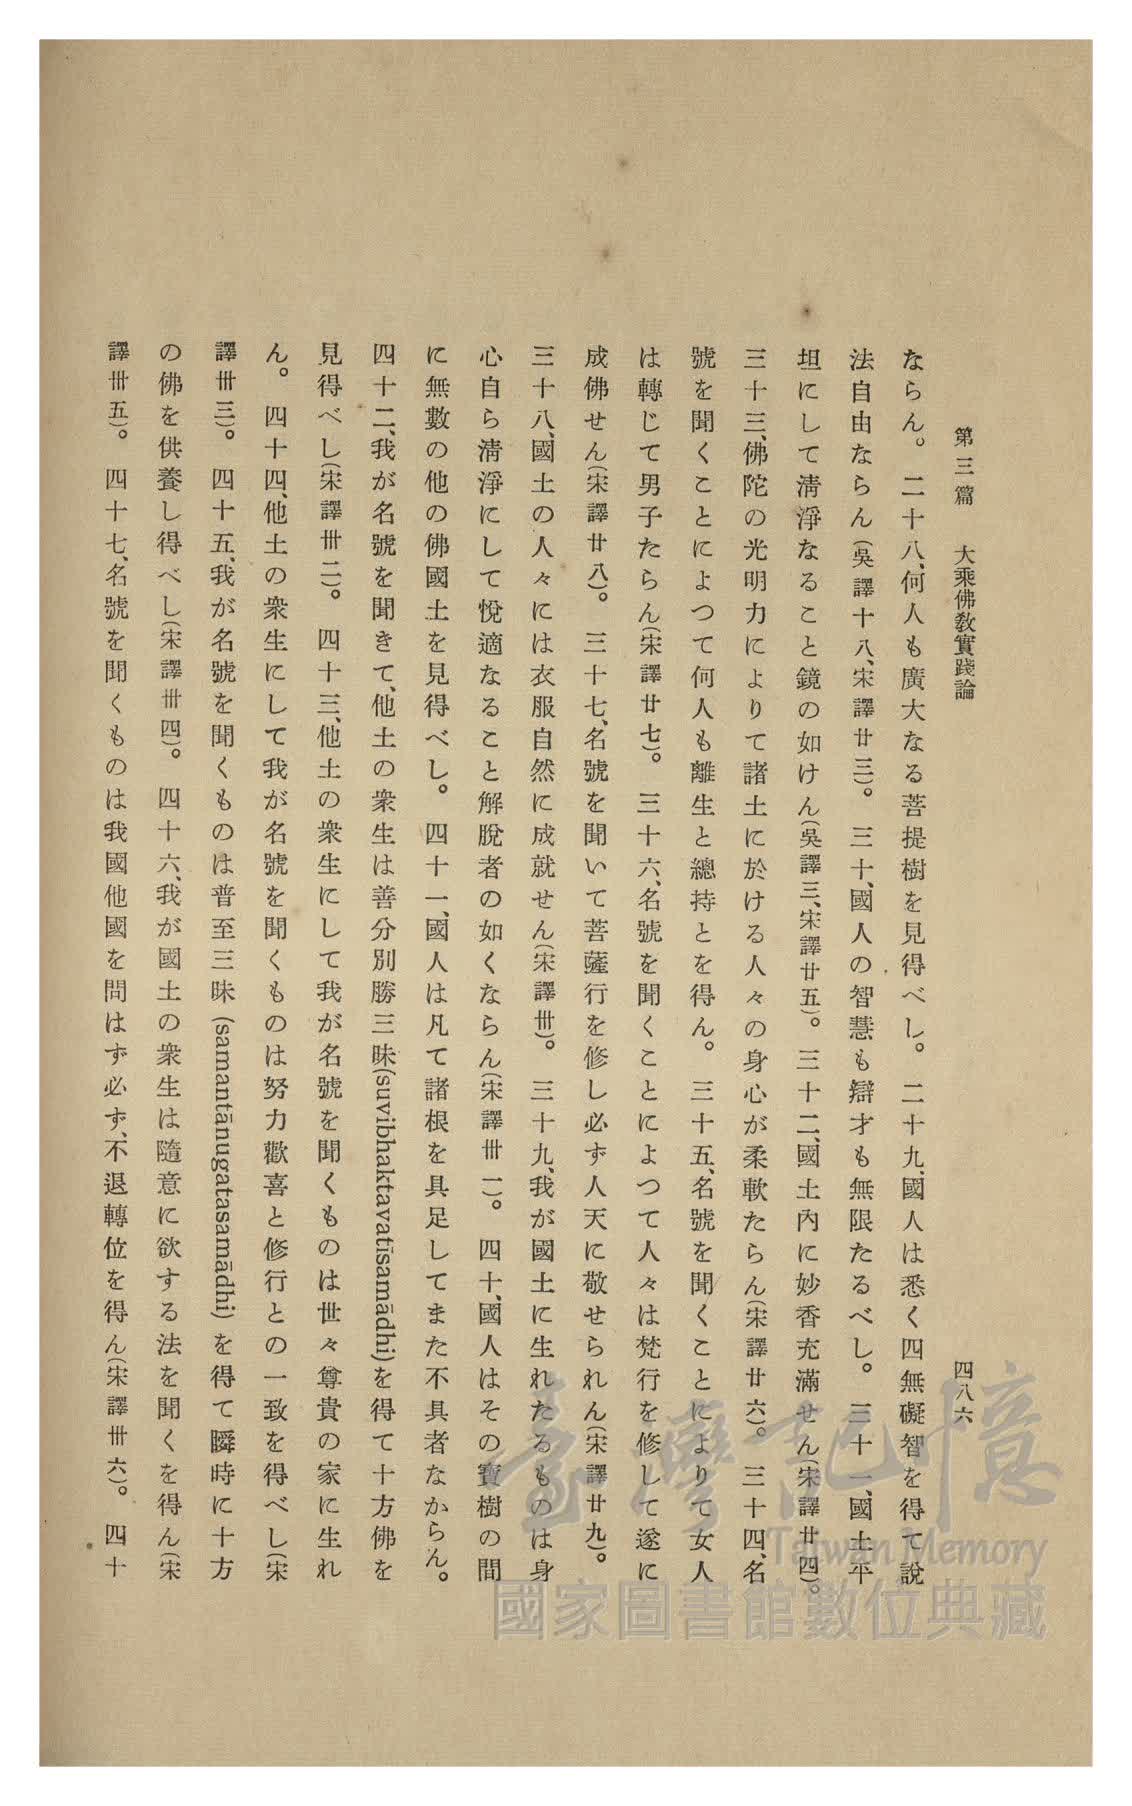 第三篇　大乘佛教實踐論　四八六
ならん。二十八、何人も廣大なる菩提樹を見得べし。二十九、國人は悉く四無礙智を得て說
法自由ならん（吳譯十八、宋譯廿三）。三十、國人の智慧も辯才も無限たるべし。三十一、國土平
坦にして淸淨なること鏡の如けん（吳譯三、宋譯廿五）。三十二、國土內に妙香充滿せん（宋譯廿四）。
三十三、佛陀の光明力によりて諸土に於ける人々の身心が柔軟たらん（宋譯廿六）。三十四、名
號を聞くことによつて何人も離生と總持とを得ん。三十五、名號を聞くことによりて女人
は轉じて男子たらん（宋譯廿七）。三十六、名號を聞くことによつて人々は梵行を修して遂に
成佛せん（宋譯廿八）。三十七、名號を聞いて菩薩行を修し必ず人天に敬せられん（宋譯廿九）。
三十八、國土の人々には衣服自然に成就せん（宋譯卅）。三十九、我が國土に生れたるものは身
心自ら淸淨にして悅適なること解脫者の如くならん（宋譯卅一）。四十、國人はその寶樹の間
に無數の他の佛國土を見得べし。四十一、國人は凡て諸根を具足してまた不具者なからん。
四十二、我が名號を聞きて、他土の衆生は善分別勝三昧(suvibhaktavatīsamādhi)を得て十方佛を
見得べし（宋譯卅二）。四十三、他土の衆生にして我が名號を聞くものは世々尊貴の家に生れ
ん。四十四、他土の衆生にして我が名號を聞くものは努力歡喜と修行との一致を得べし（宋
譯卅三）。四十五、我が名號を聞くものは普至三昧(samantānugatasamādhi)を得て瞬時に十方
の佛を供養し得べし（宋譯卅四）。四十六、我が國土の衆生は隨意に欲する法を聞くを得ん（宋
譯卅五）。四十七、名號を聞くものは我國他國を問はず必ず、不退轉位を得ん（宋譯卅六）。四十
臺灣記憶
Taiwan Memory
國家圖書館數位典藏